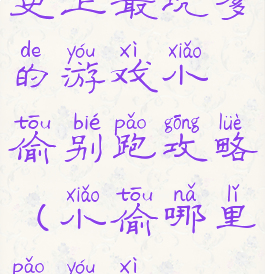 史上最坑爹
de yóu xì xiǎo
的游戏小
tōu bié pǎo gōng lüè
偷别跑攻略
xiǎo tōu nǎ lǐ
（小偷哪里
pǎo yóu xì